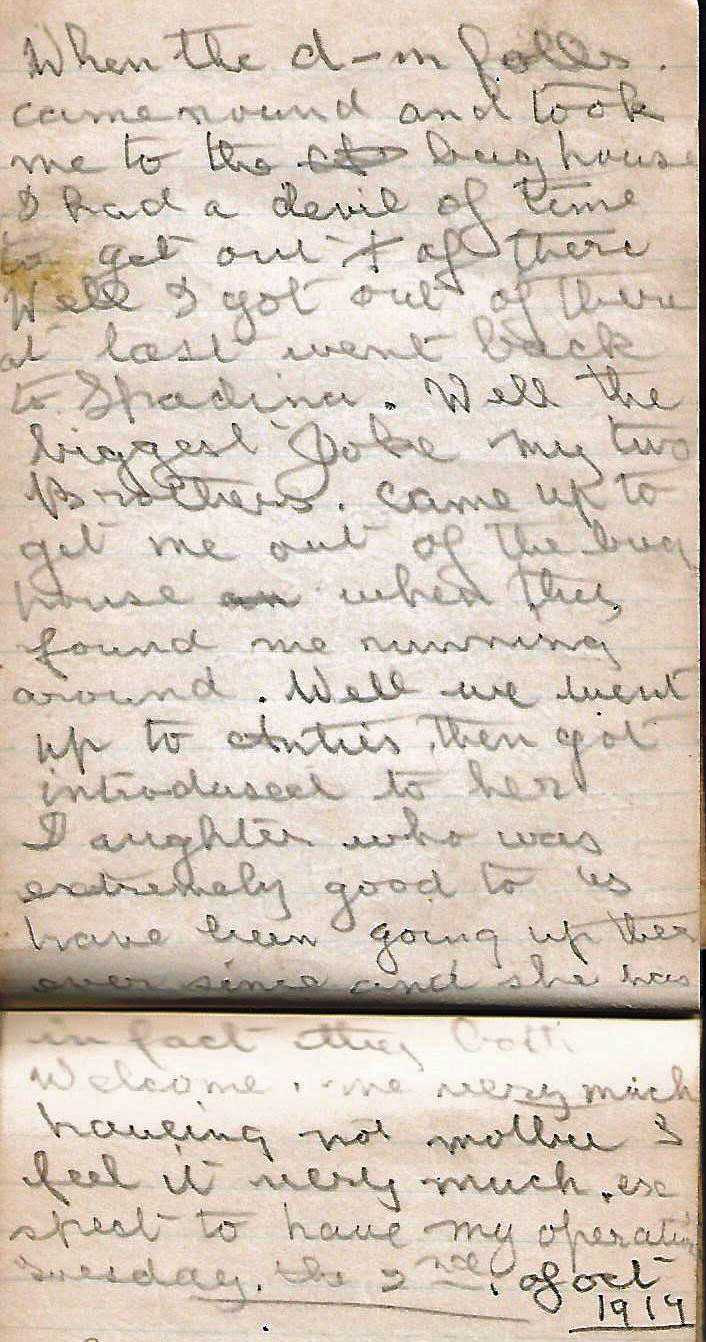 When the d-m folls.
came round and took
me to the bughouse
I had a devil of time
to get out of there
Well I got out of there
at last went back
to Spadina. Well the
biggest Joke my two
Brothers. came up to
get me out of the bug
house when they
found me running
around. Well we went
up to Anties, then got
introdused to her
Daughter who was
extremely good to us
have been going up ther
ever since and she has
in fact they both
Welcome. me very much
haveing not mother I
feel it very much. ex
spect to have my operation
Tuesday. the 2nd. of oct
1917